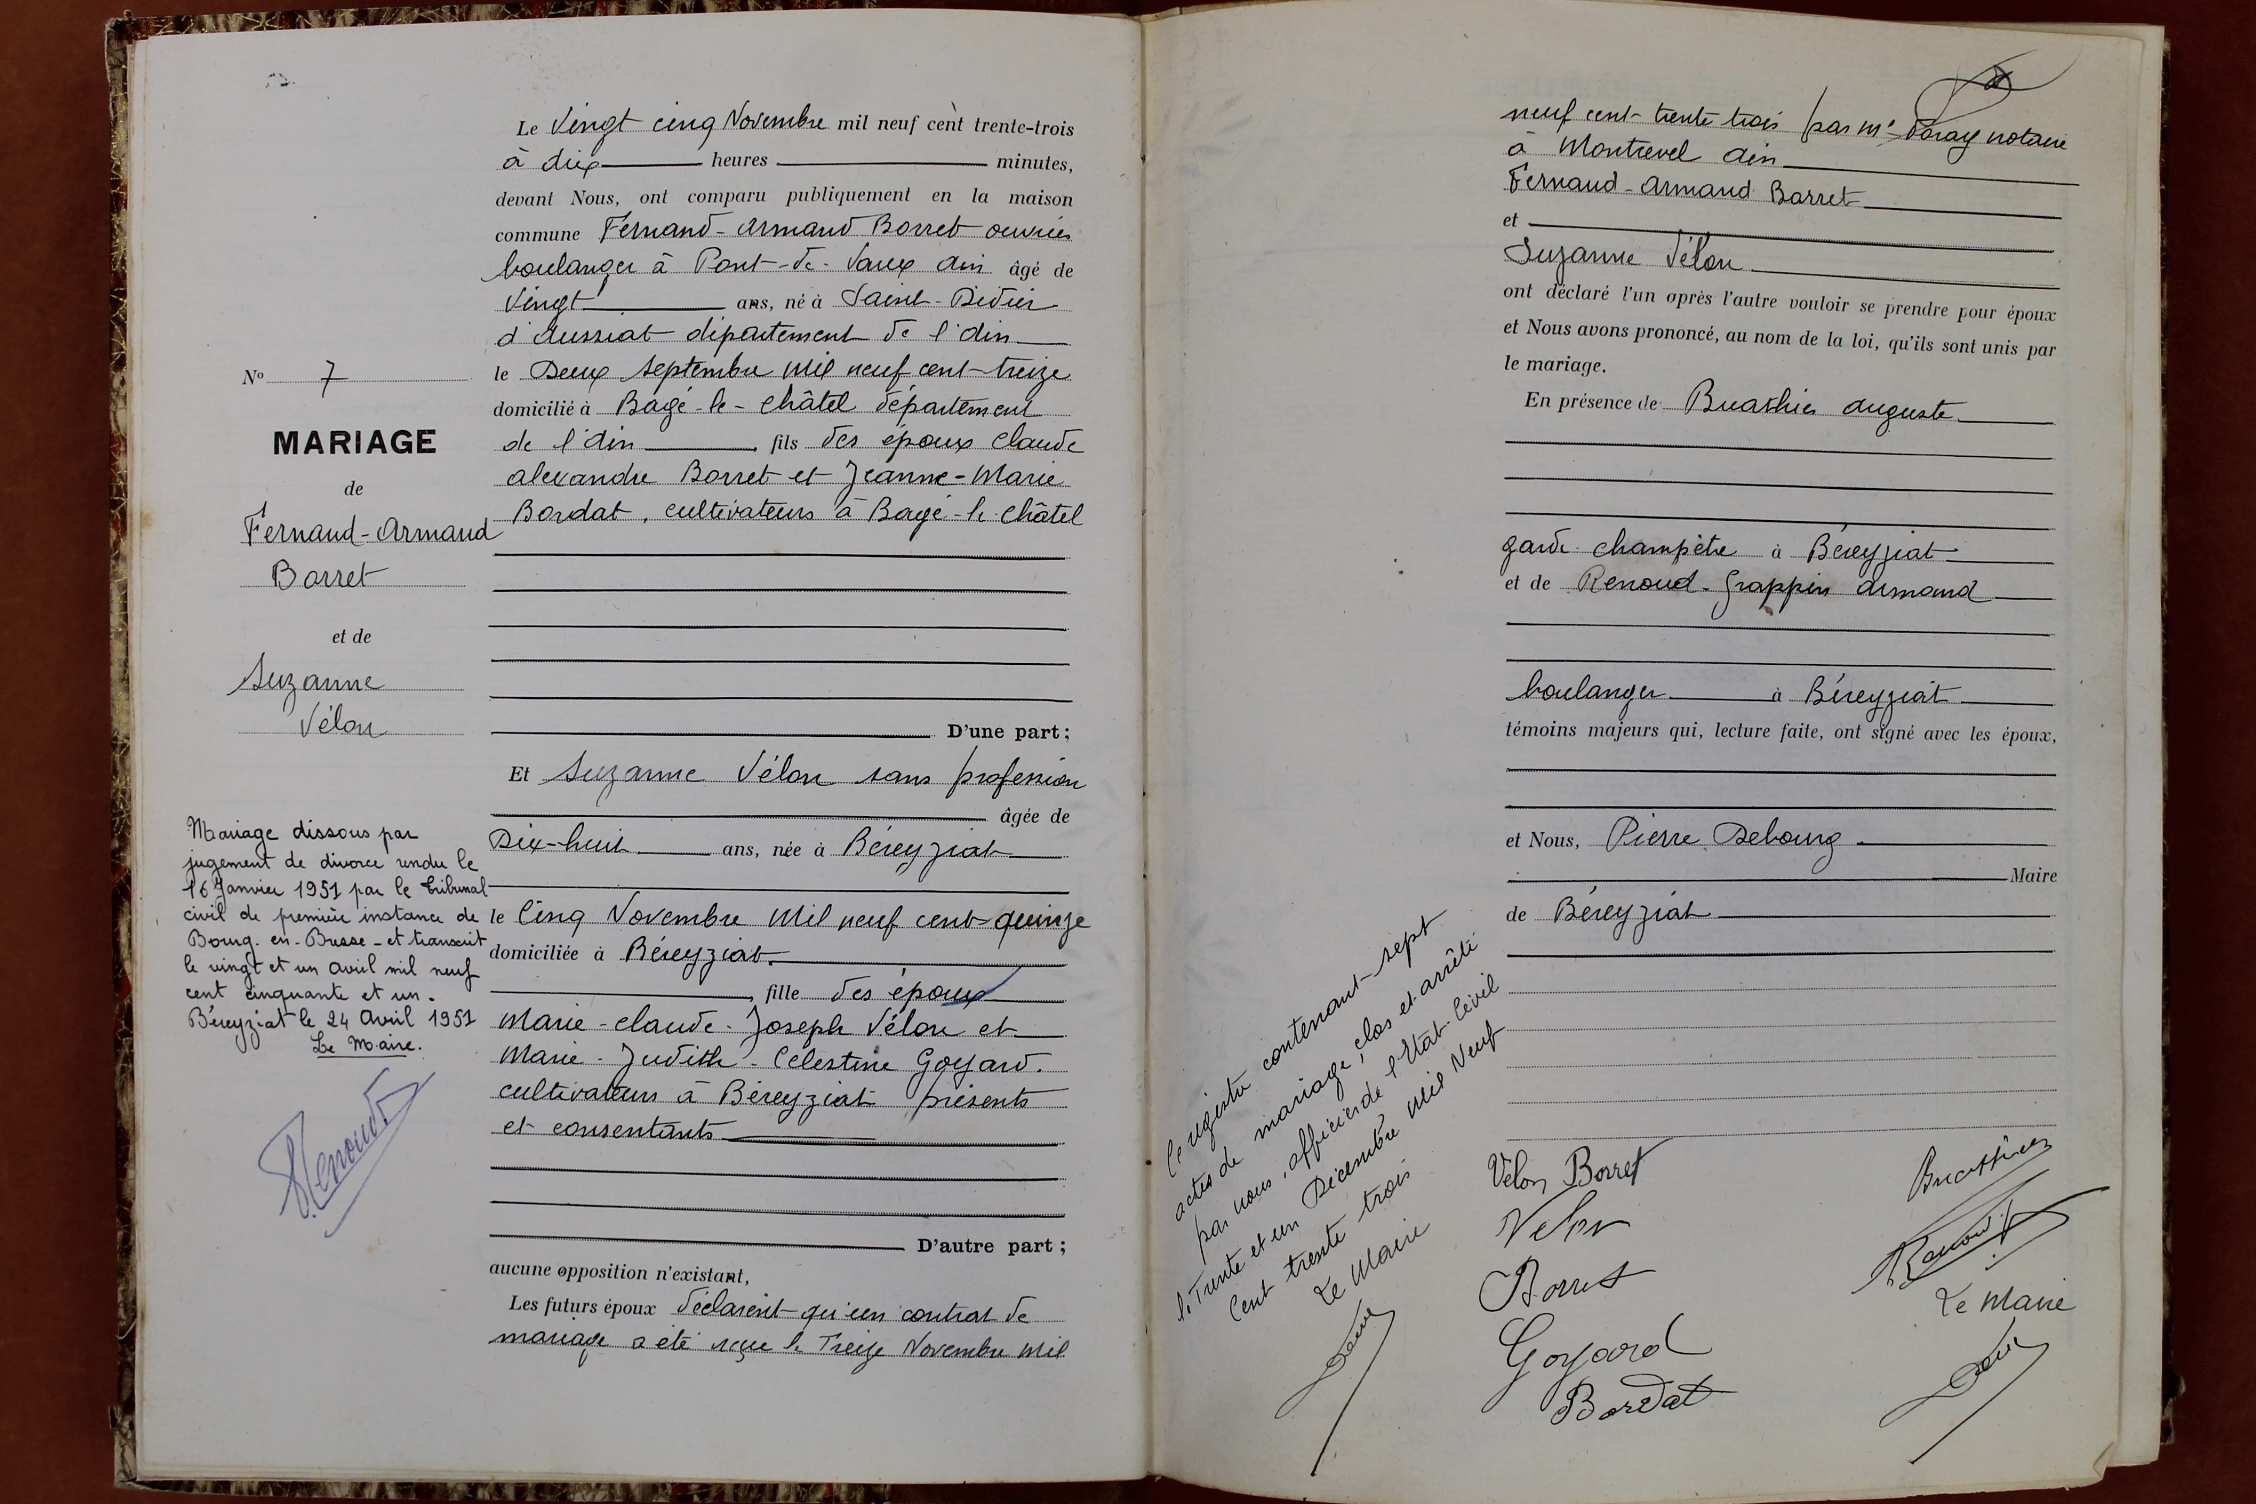 Le Vingt cinq Novembre mil neuf cent trente-trois
à dix heures minutes,
devant Nous, ont comparu publiquement en la maison
commune Fernand-Armand Borret ouvrier
boulanger à Pont-de-Vaux Ain âgé de
Vingt ans, né à Saint-Didier
d'Aussiat département de l'Ain
le Deux Septembre Mil neuf cent-treize
domicilié à Bâgé-le-Châtel département
de l'Ain fils des époux Claude
Alexandre Borret et Jeanne-Marie
Bordat, cultivateurs à Bagé-le-Châtel
D'une part;
Et Suzanne Vélon sans profession
âgée de
Dix-huit ans, née à Béreyziat
le Cinq Novembre Mil neuf cent-quinze
domiciliée à Béreyziat.
, fille des époux
Marie-Claude-Joseph Vélon et
Marie-Judith-Célestine Goyard.
cultivateurs à Béreyziat présents
et consentants
D'autre part;
aucune opposition n'existant,
Les futurs époux déclarent qu'un contrat de
mariage a été reçu le Treize Novembre Mil
No 7
MARIAGE
de
Fernand-Armand
Borret
et de
Suzanne
Vélon
Mariage dissous par
jugement de divorce rendu le
16 Janvier 1951 par le tribunal
civil de première instance de
Bourg-en-Bresse-et transcrit
le vingt et un avril mil neuf
cent cinquante et un.
Béreyziat le 24 Avril 1951
Le Maire.
Renoud
neuf cent-trente trois par Me notaire
à Montrevel Ain
Fernand-Armand Borret
et
Suzanne Vélon
ont déclaré l'un après l'autre vouloir se prendre pour époux
et Nous avons prononcé, au nom de la loi, qu'ils sont unis par
le mariage.
En présence de Buathier Auguste
garde champêtre à Béreyziat
et de Renoud-Grappin Armand
boulanger à Béreyziat
témoins majeurs qui, lecture faite, ont signé avec les époux,
et Nous, Pierre Debourg
Maire
de Béreyziat
Ce registre contenant sept
actes de mariage, clos et arrêté
par nous, officier de l'Etat-Civil
le Trente et un Décembre Mil Neuf
Cent trente trois
Le Maire
Vélon Borret
Velon
Borret
Goyard
Bordat
Buathier
Renoud
Le Maire